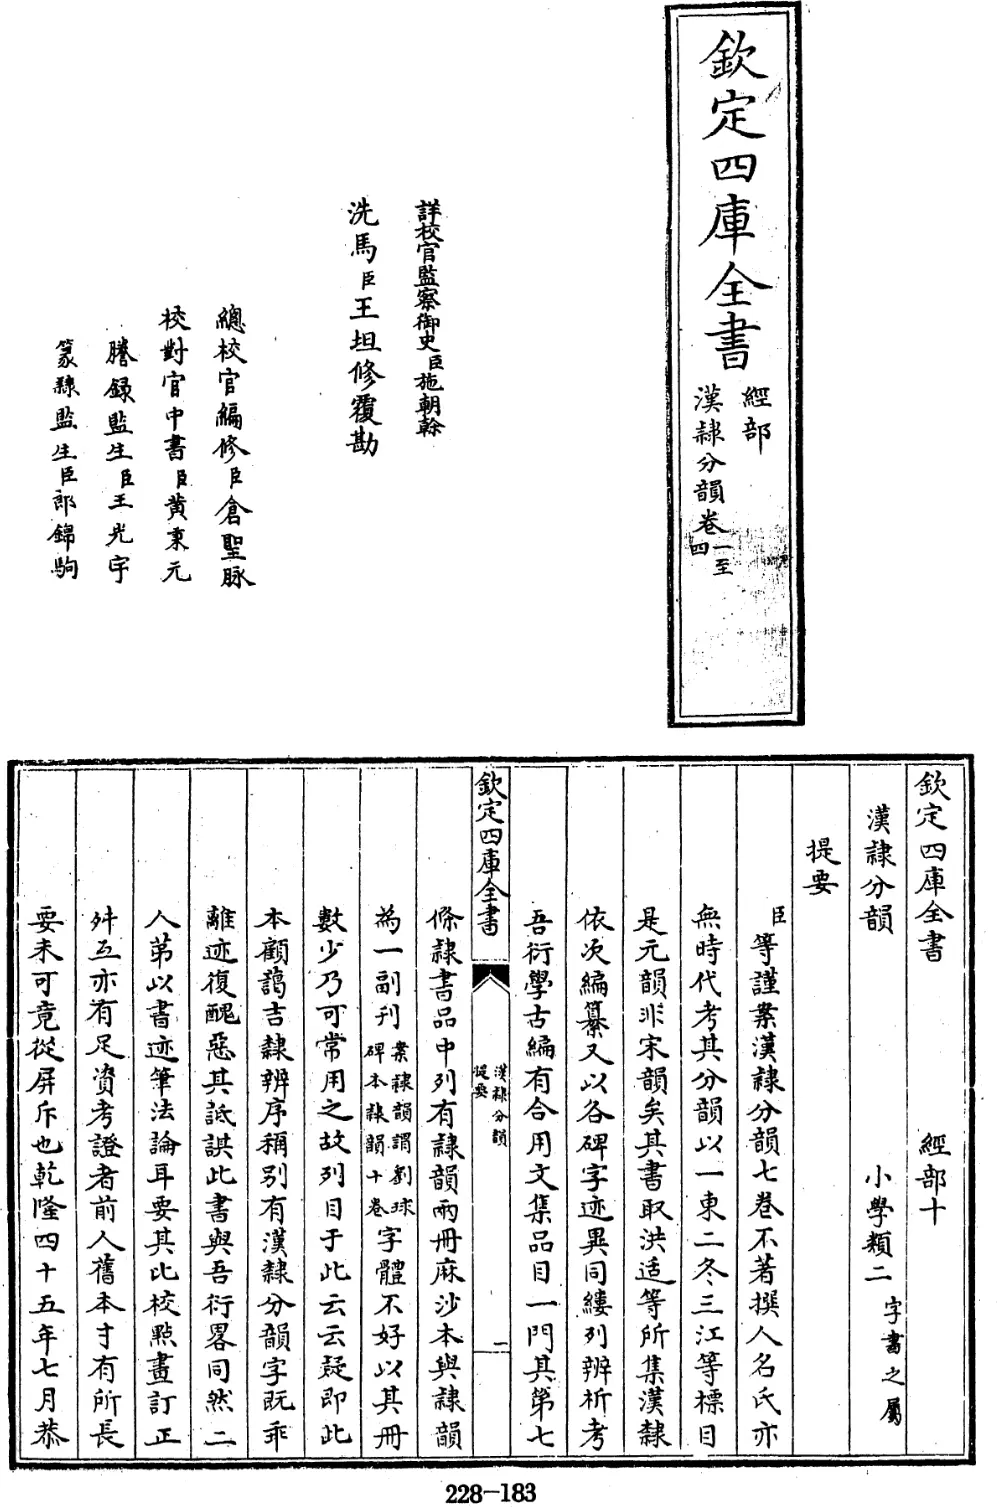 欽定四庫全書
經部
漢隸分韻卷一至四
詳校官監察御史臣施朝榦
洗馬臣王坦修覆勘
總校官編修臣倉聖脉
校對官中書臣黄秉元
謄録監生臣王光宇
篆隸監生臣郎錦駒
欽定四庫全書 經部十
漢隸分韻 小學類二 字書之屬
提要
臣等謹案漢隸分韻七卷不著撰人名氏亦
無時代考其分韻以一東二冬三江等標目
是元韻非宋韻矣其書取洪适等所集漢隸
依次編纂又以各碑字迹異同縷列辨析考
吾衍學古編有合用文集品目一門其第七
欽定四庫全書
漢隸分韻
提要
一
條隸書品中列有隸韻兩冊麻沙本與隸韻
為一副刊案隸韻謂劉球碑本隸韻十卷字體不好以其冊
數少乃可常用之故列目于此云云疑即此
本顧藹吉隸辨序稱别有漢隸分韻字既乖
離迹復醜惡其詆諆此書與吾衍畧同然二
人苐以書迹筆法論耳要其比校㸃畫訂正
舛互亦有足資考證者前人舊本寸有所長
要未可竟從屏斥也乾隆四十五年七月恭
228-183